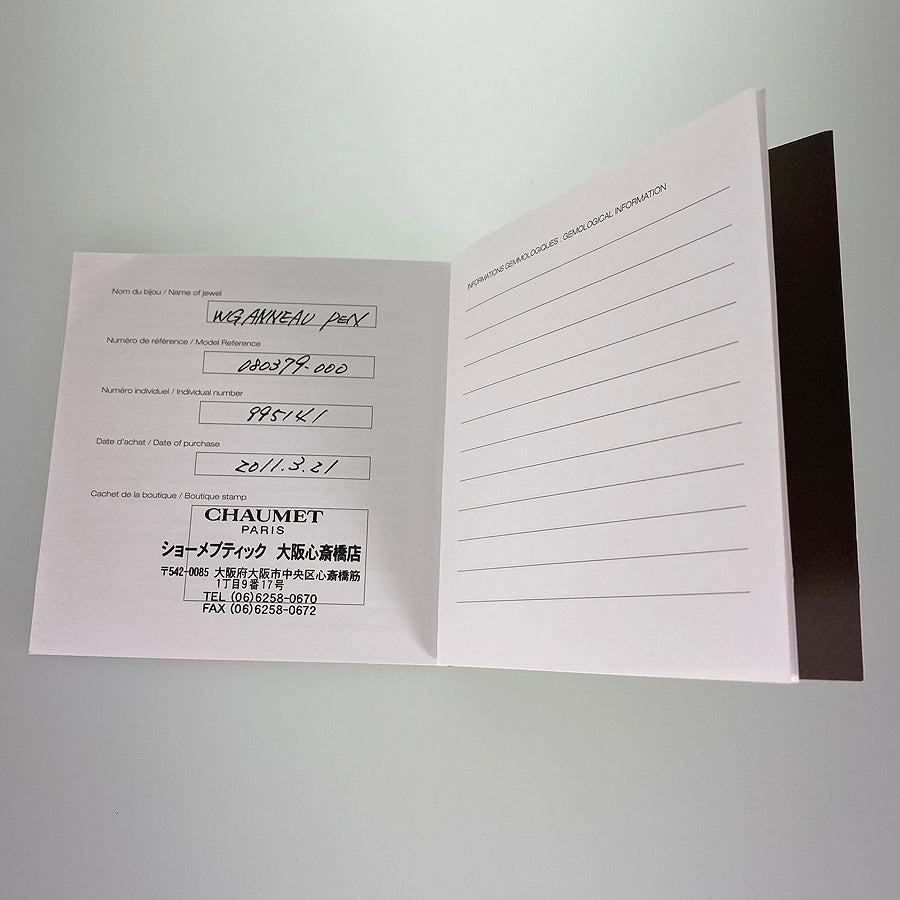 Nom du bijou / Name of jewel
WG ANNEAU PEN
Numéro de référence / Model Reference
080379-000
Numéro individuel / Individual number
995141
Date d'achat / Date of purchase
2011.3.21
Cachet de la boutique / Boutique stamp
CHAUMET
PARIS
ショーメブティック 大阪心斎橋店
〒542-0085 大阪府大阪市中央区心斎橋筋
1丁目9番17号
TEL (06)6258-0670
FAX (06)6258-0672
INFORMATIONS GEMMOLOGIQUES : GEMOLOGICAL INFORMATION